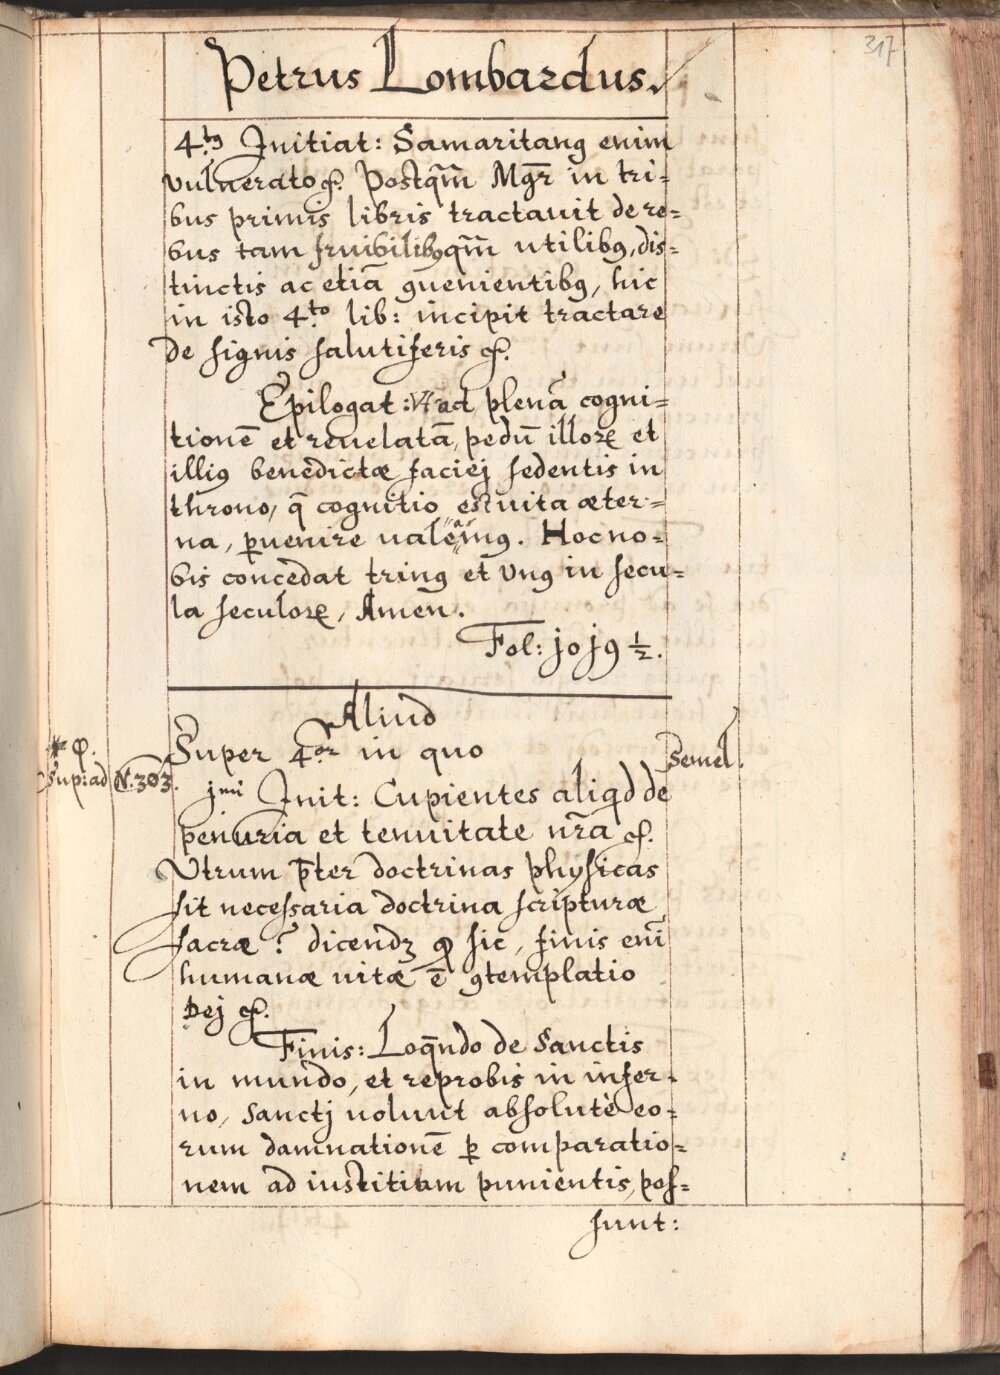 317
Petrus Lombardus.
4.tꝰ Initiat: Samaritanꝰ enim
vulneratoꝝ. Postqm̃ Mgr̃ in tri=
bus primis libris tractauit de re=
bus tam fruibilibꝰ qm̃ utilibꝰ, dis=
tinctis ac etiã ꝯuenientibꝰ, hic
in isto 4.to lib: incipit tractare
de signis salutiferis &.
Epilogat: Vt ad plenã cogni=
tionẽ et reuelatã, pedũ illoꝝ et
illiꝰ benedictæ faciej sedentis in
throno, q̃ cognitio est uita æter=
na, ꝑuenire ualeamꝰ. Hoc no=
bis concedat trinꝰ et Vnꝰ in secu=
la seculoꝝ, Amen.
Fol: jo j9 ½.
Aliud
Super 4.or in quo
Semel.
Sup: ad N. 303.
jmi Init: Cupientes aliqd de
penuria et tenuitate nr̃a &.
Vtrum p̃ter doctrinas physicas
sit necessaria doctrina scripturæ
sacræ? dicendꝫ ꝙ sic, finis enĩ
humanæ uitæ ẽ ꝯtemplatio
Dej &.
Finis: Loq̃ndo de Sanctis
in mundo, et reprobis in infer=
no, Sanctj uolunt absolutè eo=
rum damnationẽ ꝑ comparatio=
nem ad iustitiam punientis, pos=
sunt: